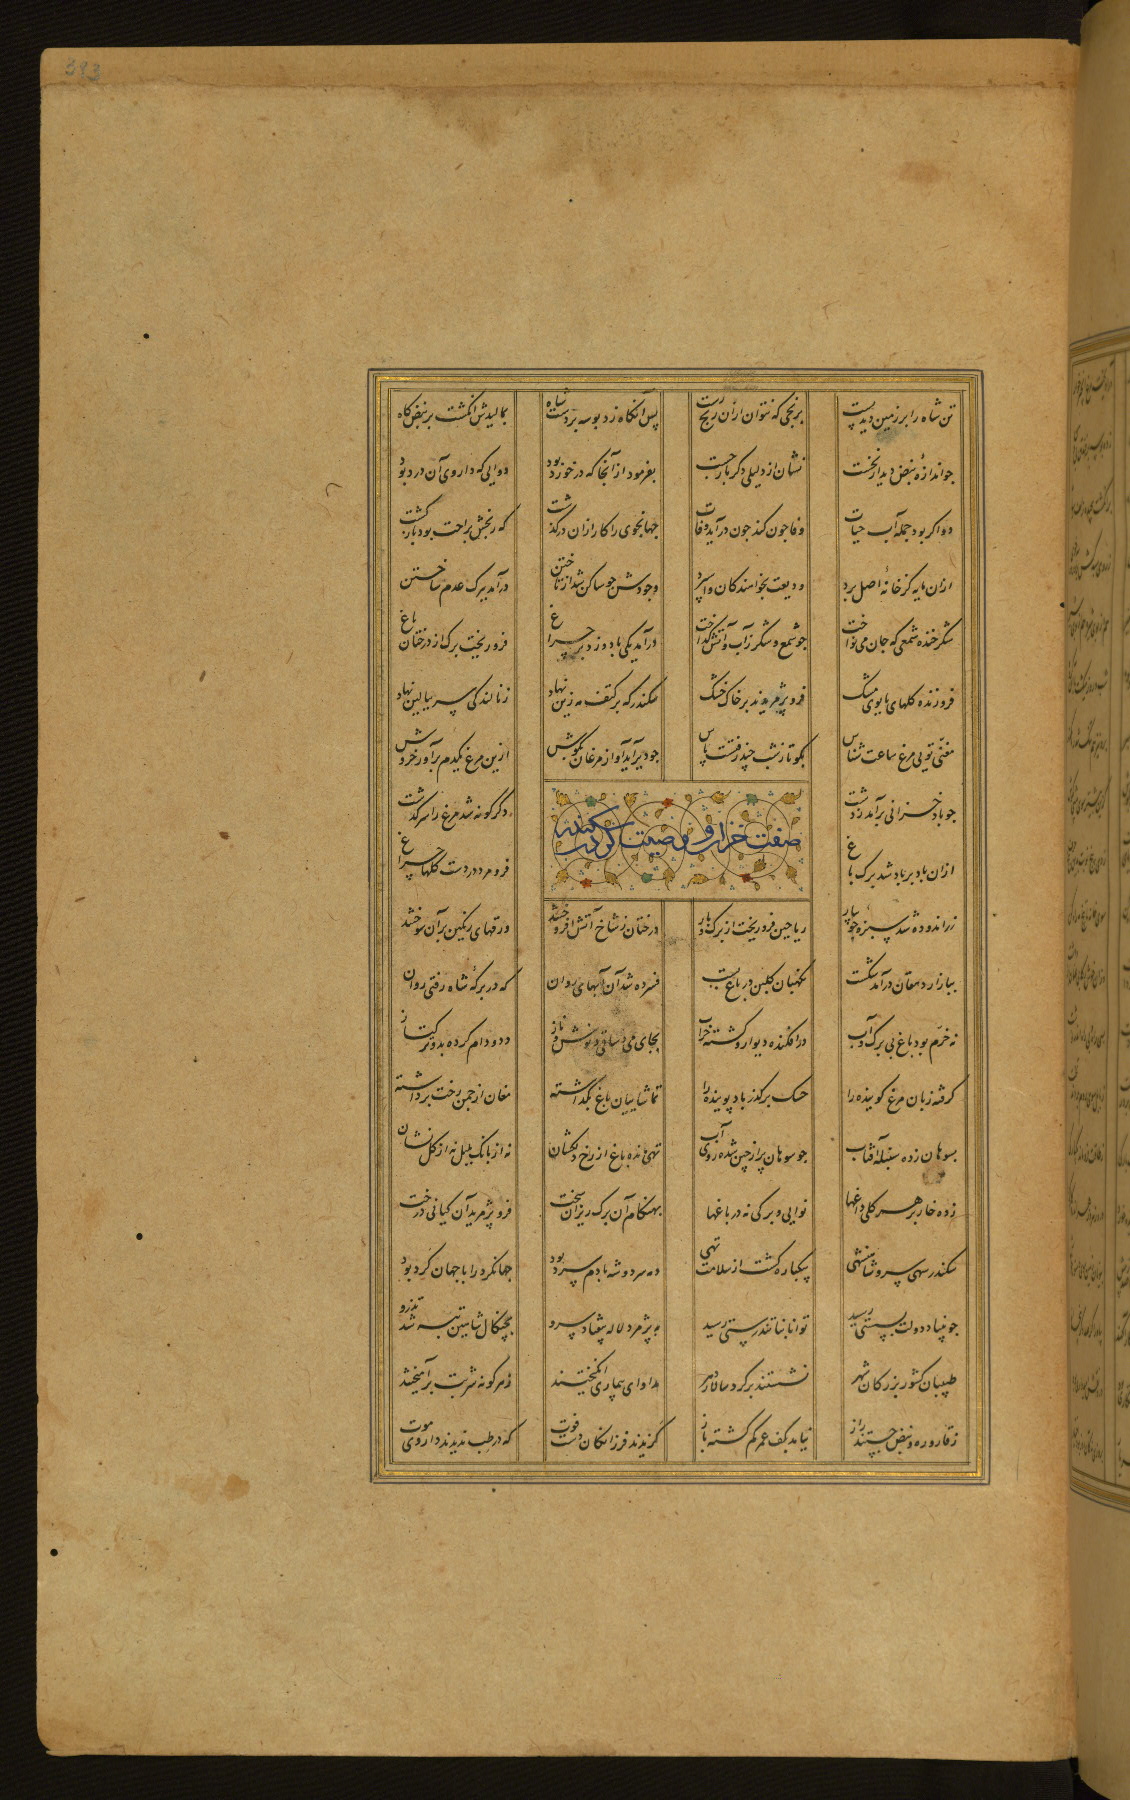 393
تن شاه را بر زمین دید پست برنجی که نتوان ازان رنج رست پس آنگاه زد بوسه بر دست شاه بمالیدش انگشت بر نبض کاه
چو اندازه نبض دید از نخست نشان از دلیلی دگر باز جست بفرمود از آنجا که در خورد بود دوایی که داروی آن درد بود
دوا کر بود جمله آب حیات وفا چون کند چون در آید وفات جهانجوی را کار ازان درگذشت که رنجش براحت بود بازگشت
ازان مایه کز خانه اصل برد ودیعت بخواهندکان واسپرد وجودش چو ساکن شد از تاختن درآمد ببرک عدم ساختن
شکر خنده شمعی که جان می نواخت چو شمع و شکر زآب و آتش کداخت درآمد یکی باد و زد بر چراغ فرو ریخت برک از درختان باغ
فروزنده کلهای با بوی مشک فرو پژمریدند بر خاک خشک سکندر که بر کتف مه زین نهاد ز نالندکی سر ببالین نهاد
مغنی تویی مرغ ساعت شناس بکو تا ز شب چند رفتست پاس چو دیر آید آواز مرغان بکوش ازین مرغ یکدم برآور خروش
صفت خزان و وصیت کردن سکندر
چو باد خزانی برآمد ز دشت دکرکونه شد مرغ را سرکذشت
ازان باد برباد شد برک باغ فرو مرد در دست کلها چراغ
زراندوده شد سبزه جویبار ریاحین فرو ریخت از برک و بار درختان ز شاخ آتش افروخته ورقهای رنکین برآن سوخته
ببازار دهقان درآمد شکست نکهبان کلبن در باغ بست فسرده شد آن آبهای روان که در برکه شاه رفتی روان
نه خرم بود باغ بی برک و آب درافکنده دیوار و کشته خراب بجای می و ساقی و نوش و ناز دد و دام کرده بدو ترکتاز
کرفته زبان مرغ کوینده را خسک برکذر باد پوینده را تماشاییان باغ بکذاشته مغان از چمن رخت برداشته
بسوهان زده سنبله آفتاب چو سوهان پر از چین شده روی آب تهی مانده باغ از رخ دلکشان نه از بانک بلبل نه از کل نشان
زده خار بر هر کلی داغها نوایی و برکی نه در باغها بهنکام آن برک ریزان سخت فرو پژمرید آن کیانی درخت
سکندر سهی سرو شاهنشهی یکباره کشت از سلامت تهی دمه سرد و شه با دم سرد بود جهانکرد را با جهان کرد بود
چو بنیاد دولت بسستی رسید توانا بنا تندرستی رسید بپژمرد لاله بیفتاد سرو بچنکال شاهین تبه شد تذرو
طبیبان کشور بزرکان شهر نشستند بر کرد سالار دهر مداوای بیماری انکیختند ز هر کونه شربت برآمیختند
ز قاروره و نبض جستند راز نیامد بکف عمر کم کشته باز کزیدند فرزانکان دست فوت که در طب ندیدند داروی موت